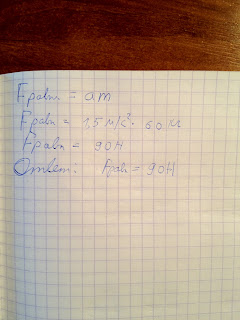 Fравн = am
Fравн = 1,5 м/с² · 60 м
Fравн = 90Н
Ответ: Fравн = 90Н